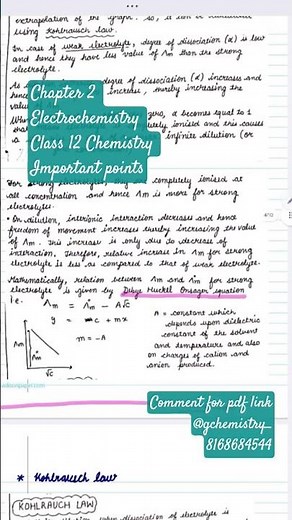 extrapolation of the graph. So, it can be
using Kohlrausch law.
In case of weak electrolyte, degree of dissociation (α) is low
and hence they have less value of Λm than the strong
electrolyte.
degree of dissociation (α) increases and
increasing the
Chapter 2
Electrochemistry
Class 12 Chemistry
Important points
zero, α becomes equal to 1
ionised and this causes
infinite dilution (or
For strong electrolytes, they are completely ionised at
all concentration and hence Λm is more for strong
electrolyte.
• On dilution, interionic interaction decreases and hence
freedom of movement increases thereby increasing the value
of Λm. This increase is only due to decrease of
interaction. Therefore, relative increase in Λm for strong
electrolyte is less as compared to that of weak electrolyte.
Mathematically, relation between Λm and Λ°m for strong
electrolyte is given by Debye Huckel Onsager equation
i.e.
Λm = Λ°m - A√c
y = c + mx
m = -A
Λm
Λ°m
√c
A = constant which
depends upon dielectric
constant of the solvent
and temperature and also
on charges of cation and
anion produced.
4/12
Comment for pdf link
@gchemistry_
8168684544
* Kohlrausch law
KOHLRAUCH LAW
when dissociation of electrolyte is